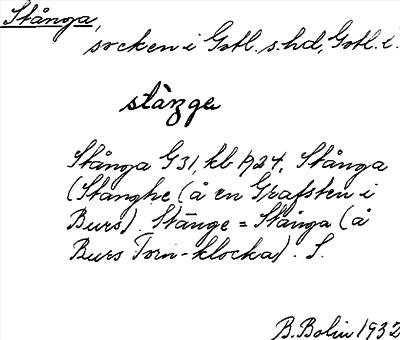 Stånga,
socken i Gotl. s. hd, Gotl. l.
stàzga
Stånga G31, kb 1724, Stånga
(Stanghe (å en Grafsten i
Burs). Stånge = Stånga (å
Burs Torn-klocka). S.
B. Bolin 1932